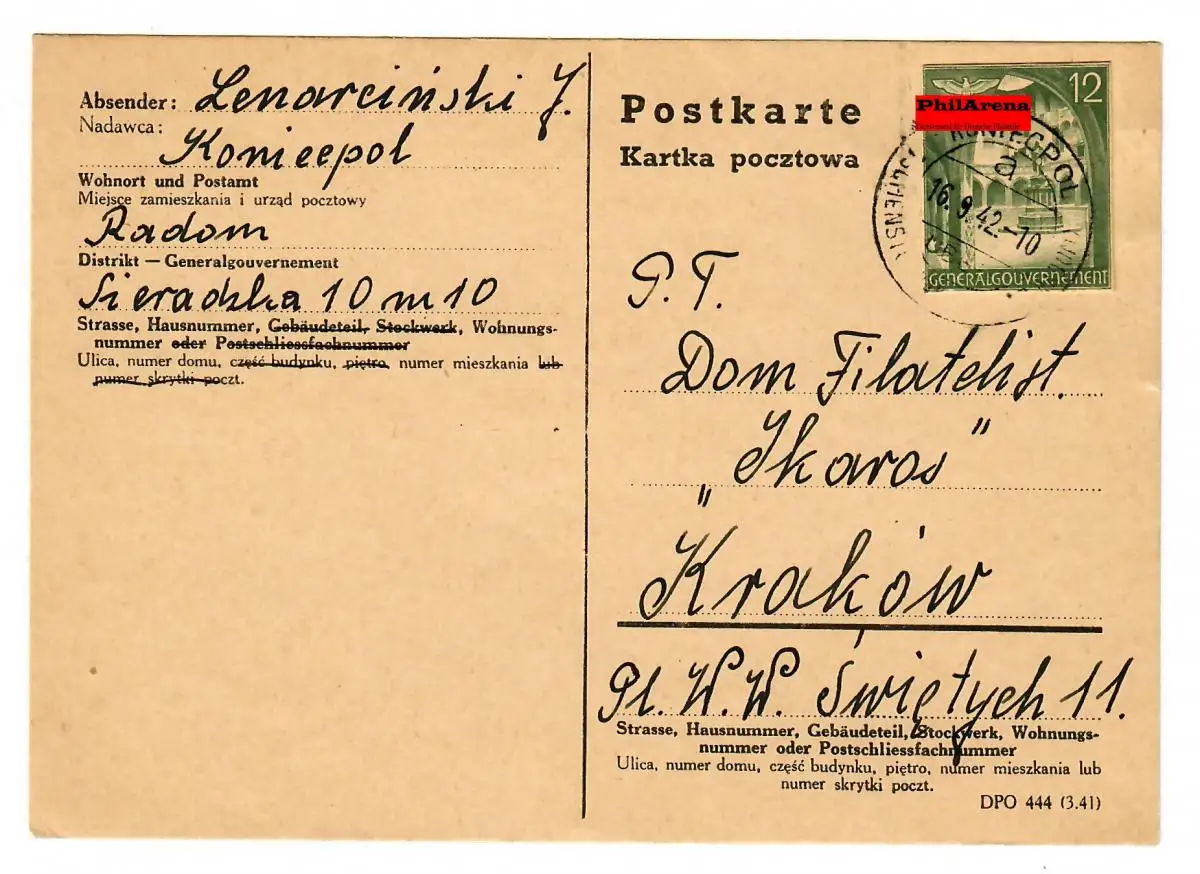 Absender: Lenarciński J.
Nadawca:
Koniecpol
Wohnort und Postamt
Miejsce zamieszkania i urząd pocztowy
Radom
Distrikt — Generalgouvernement
Sieradzka 10 m 10
Strasse, Hausnummer, Gebäudeteil, Stockwerk, Wohnungs-
nummer oder Postschliessfachnummer
Ulica, numer domu, część budynku, piętro, numer mieszkania lub
numer skrytki poczt.
Postkarte
Kartka pocztowa
12
PhilArena
KONIEGPOL
a
16.9.42.-10
GENERALGOUVERNEMENT
P. T.
Dom Filatelist.
„Ikaros"
Kraków
Pl. W. W. Świętych 11.
Strasse, Hausnummer, Gebäudeteil, Stockwerk, Wohnungs-
nummer oder Postschliessfachnummer
Ulica, numer domu, część budynku, piętro, numer mieszkania lub
numer skrytki poczt.
DPO 444 (3.41)